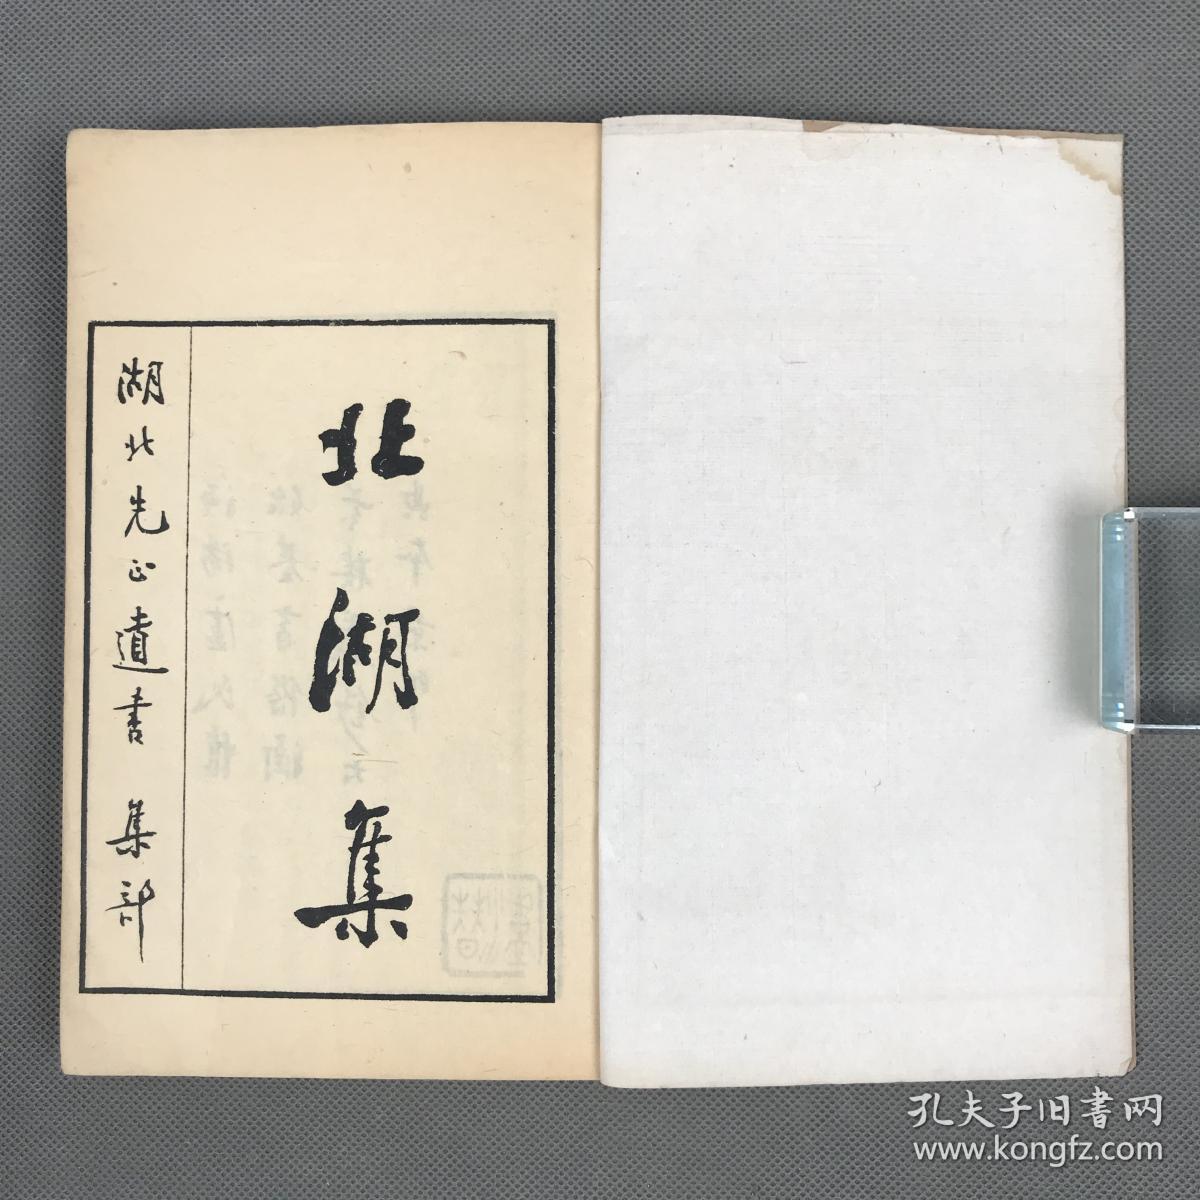 北湖集
湖北先正遺書 集部
孔夫子旧書网
www.kongfz.com